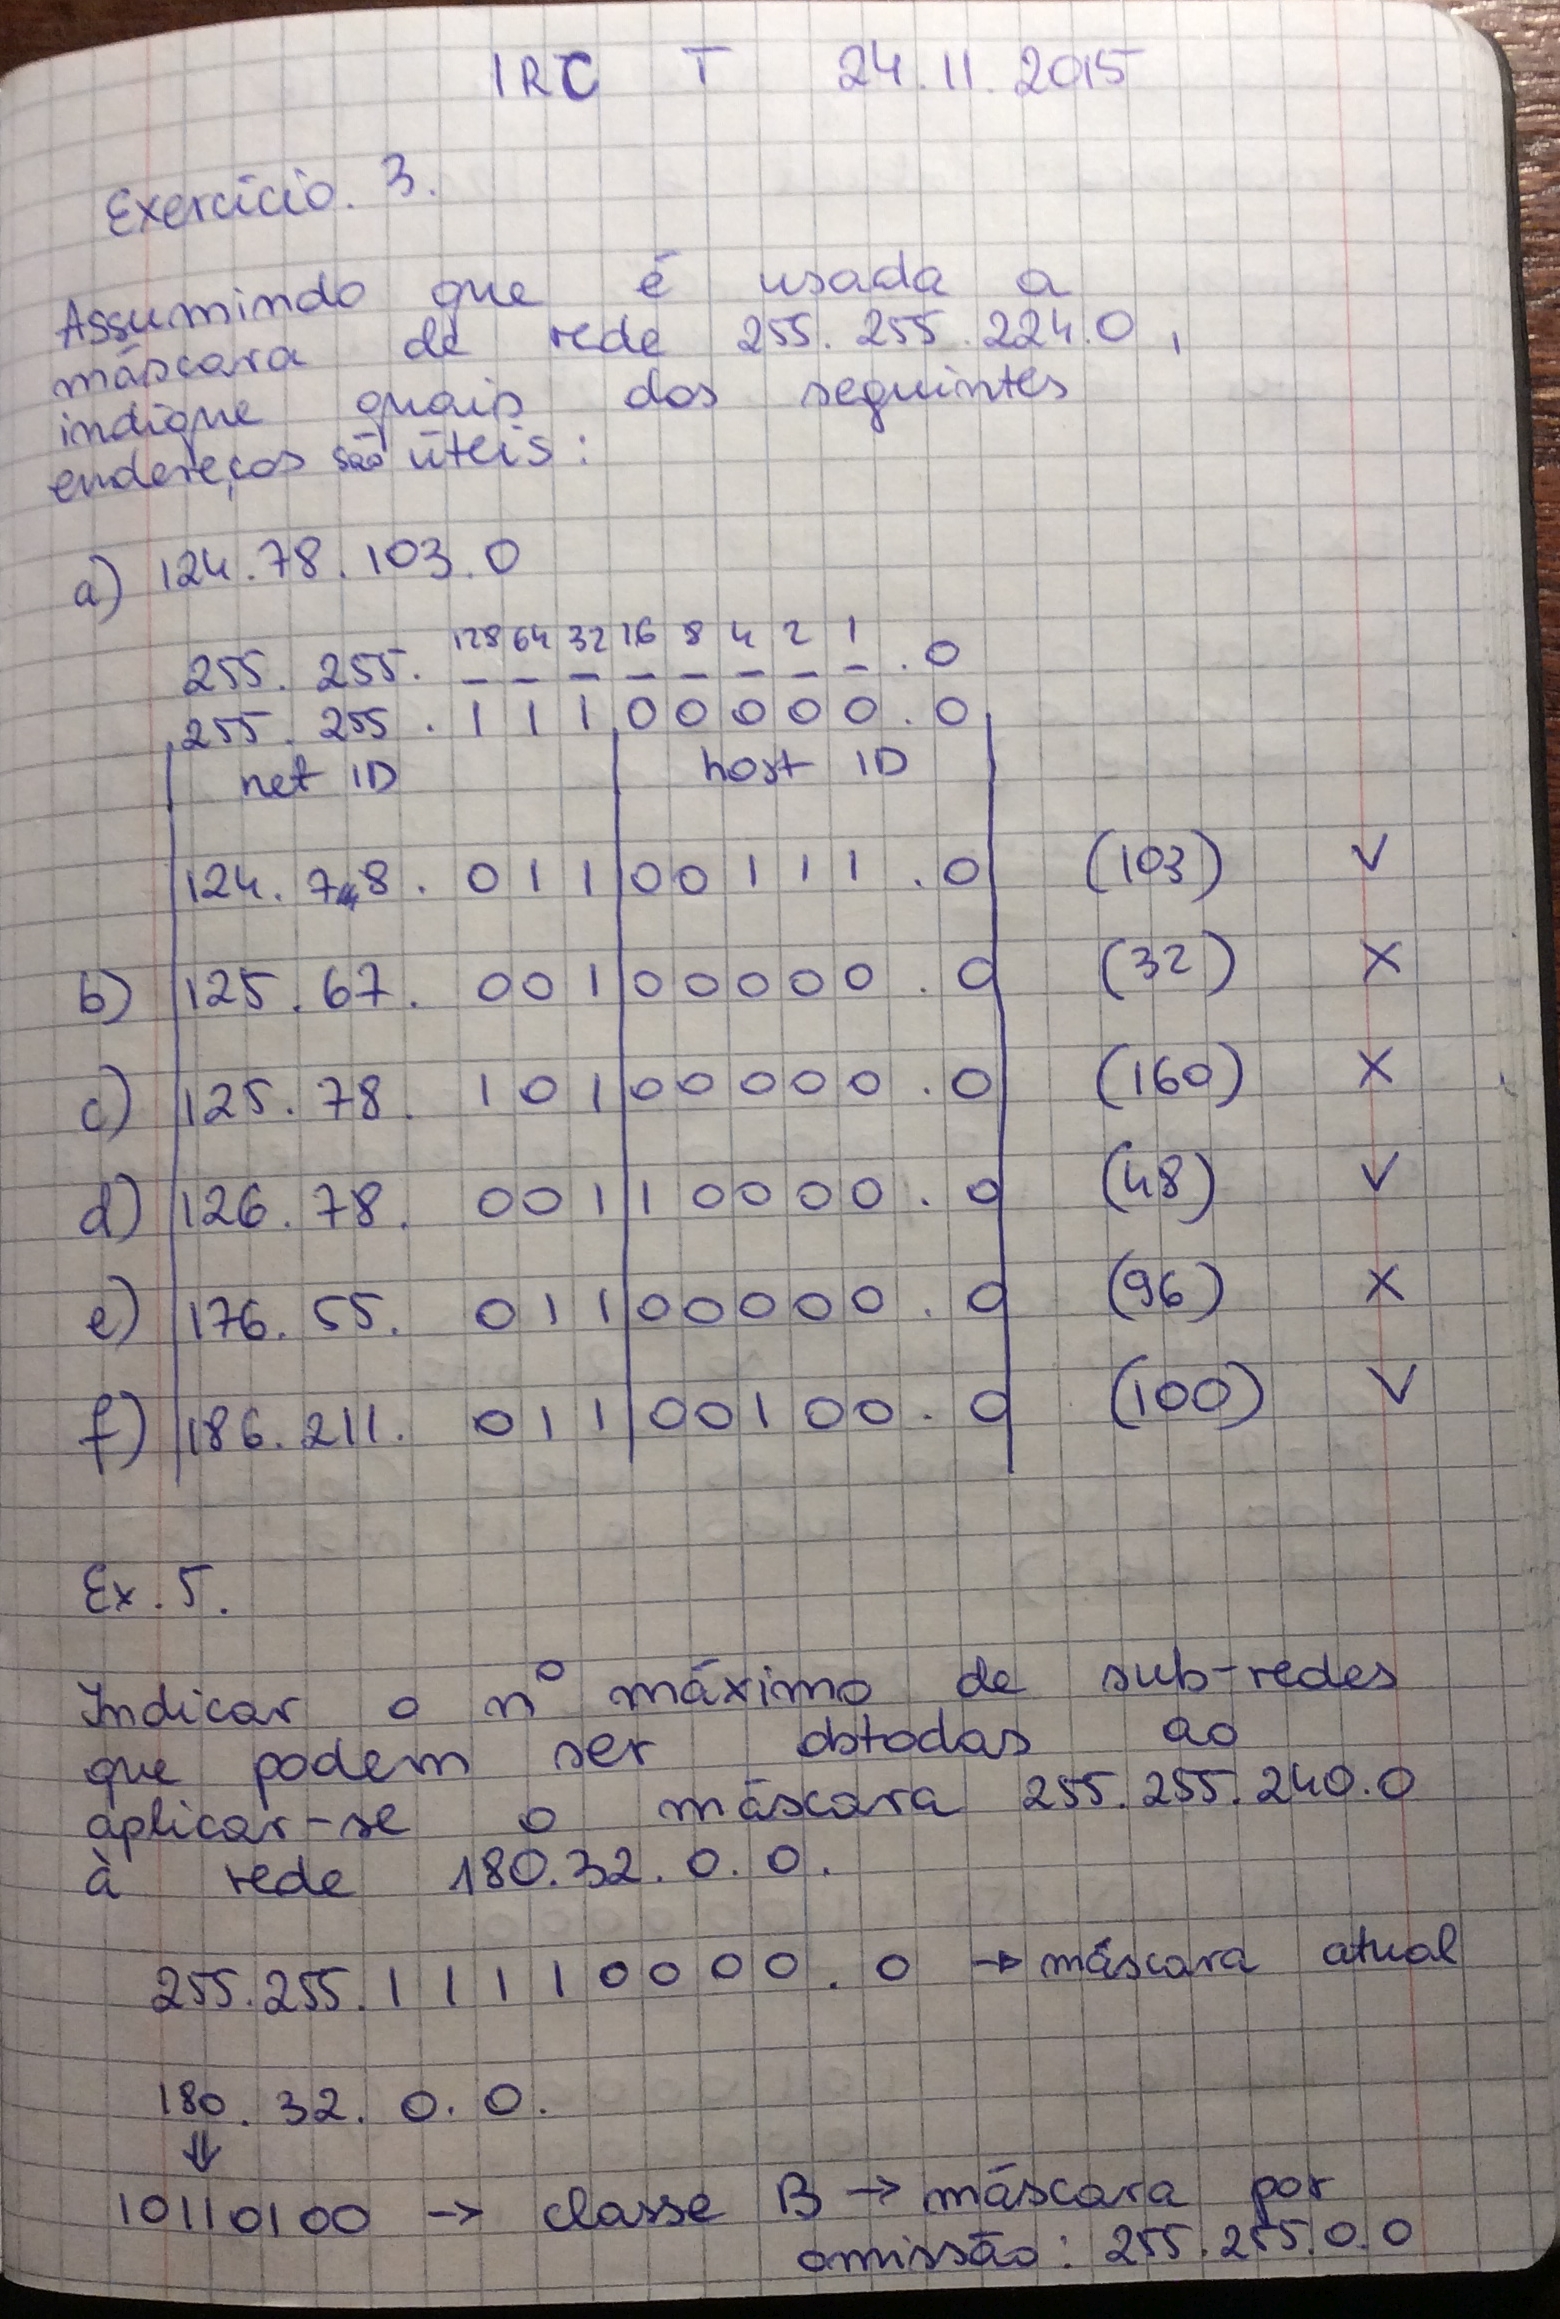 IRC T 24.11.2015
Exercício. 3.
Assumindo que é usada a
máscara de rede 255.255.224.0,
indique quais dos seguintes
endereços são úteis:
a) 124.78.103.0
128 64 32 16 8 4 2 1
255. 255. _ _ _ _ _ _ _ _ . 0
255. 255. 1 1 1 0 0 0 0 0 . 0
net ID host ID
124. 78. 0 1 1 0 0 1 1 1 . 0 (103) V
b) 125. 67. 0 0 1 0 0 0 0 0 . 0 (32) X
c) 125. 78. 1 0 1 0 0 0 0 0 . 0 (160) X
d) 126. 78. 0 0 1 1 0 0 0 0 . 0 (48) V
e) 176. 55. 0 1 1 0 0 0 0 0 . 0 (96) X
f) 186. 211. 0 1 1 0 0 1 0 0 . 0 (100) V
Ex. 5.
Indicar o nº máximo de sub-redes
que podem ser obtodas ao
aplicar-se o máscara 255.255.240.0
à rede 180.32.0.0.
255.255. 1 1 1 1 0 0 0 0 . 0 → máscara atual
180. 32. 0. 0.
⇓
10110100 → classe B → máscara por
omissão: 255.255.0.0